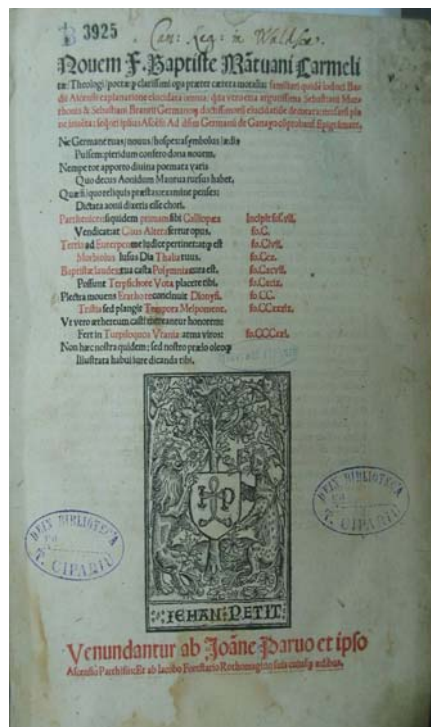 B 3925
Can: Reg: in Waldsee.
Nouem F. Baptiste Mãtuani Carmeli
tæ: Theologi/poetæq̃ clarissimi opa præter cætera moralia: familiari quidẽ Iodoci Ba
dii Ascensii explanatione elucidata omnia: qua vero etiã argutissima Sebastiani Mur
rhonis & Sebastiani Brantii Germanorũ doctissimorũ elucidatiõe
Ad dñm Germanũ de Ganayo
Ne Germane tuas/nouus/hospes/asymbolus/ædis
Pulsem: pieridum confero dona nouem.
Nempe tot apposito diuina poemata variis
Quo decus Aonidum Mantua rursus habet.
Quæ si/quo reliquis præstas: examine penses:
Dictata aonii dixeris esse chori.
Partheniceñ siquidem primam sibi Calliopea
Incipit fo.
Vendicat: at Clius Altera fertur opus.
fo.C.
Tertia ad Euterpen me iudice pertinet: atqȝ est
fo.Clvii.
Morbosius lusus Dia Thalia tuus.
fo.Ccx.
Baptistæ laudes tua casta Polymnia cura est.
fo.Ccxvii.
Possunt Terpsichore Vota placere tibi.
fo.Ccxix.
Plectra mouens Erathore concinuit Dionysii.
fo CC.
Tristia sed plangit Tempora Melpomene.
fo.CCxxxix.
Vt vero æthereum casti mereantur honorem:
Fert in Turpiloquos Vrania arma viros:
fo.CCCxxi.
Non hæc nostra quidem: sed nostro prælo oleoqȝ
Illustrata habui iure dicanda tibi.
I P
IEHAN PETIT
BEIX BIBLIOTECA
T. CIPARIU
BEIX BIBLIOTECA
T. CIPARIU
Venundantur ab Joãne Paruo et ipso
Ascensio Parrhisiis: Et ab Iacobo Forestario Rothomagi in suis cuiusqȝ ædibus.